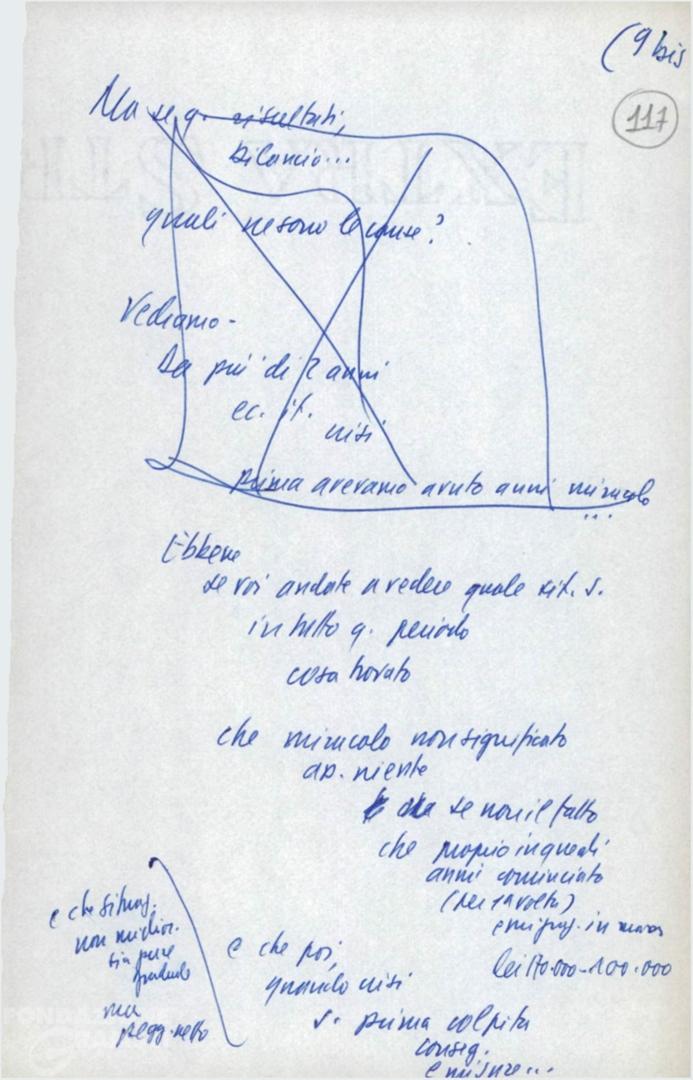 (9 bis
117
Ma se q. risultati,
bilancio...
quali ne sono le cause?
Vediamo -
Da più di 2 anni
ec. it.
crisi
prima avevamo avuto anni miracolo
...
Ebbene
se voi andate a vedere quale sit. S.
in tutto q. periodo
cosa trovato
che miracolo non significato
ap. niente
se non il fatto
che proprio in quegli
anni cominciato
(per 1a volta)
emigraz. in massa
100.000
e che situaz.
non miglior.
sia pure
graduale
ma
pegg. netto
e che poi,
quando crisi
S. prima colpita
conseg.
e misure...